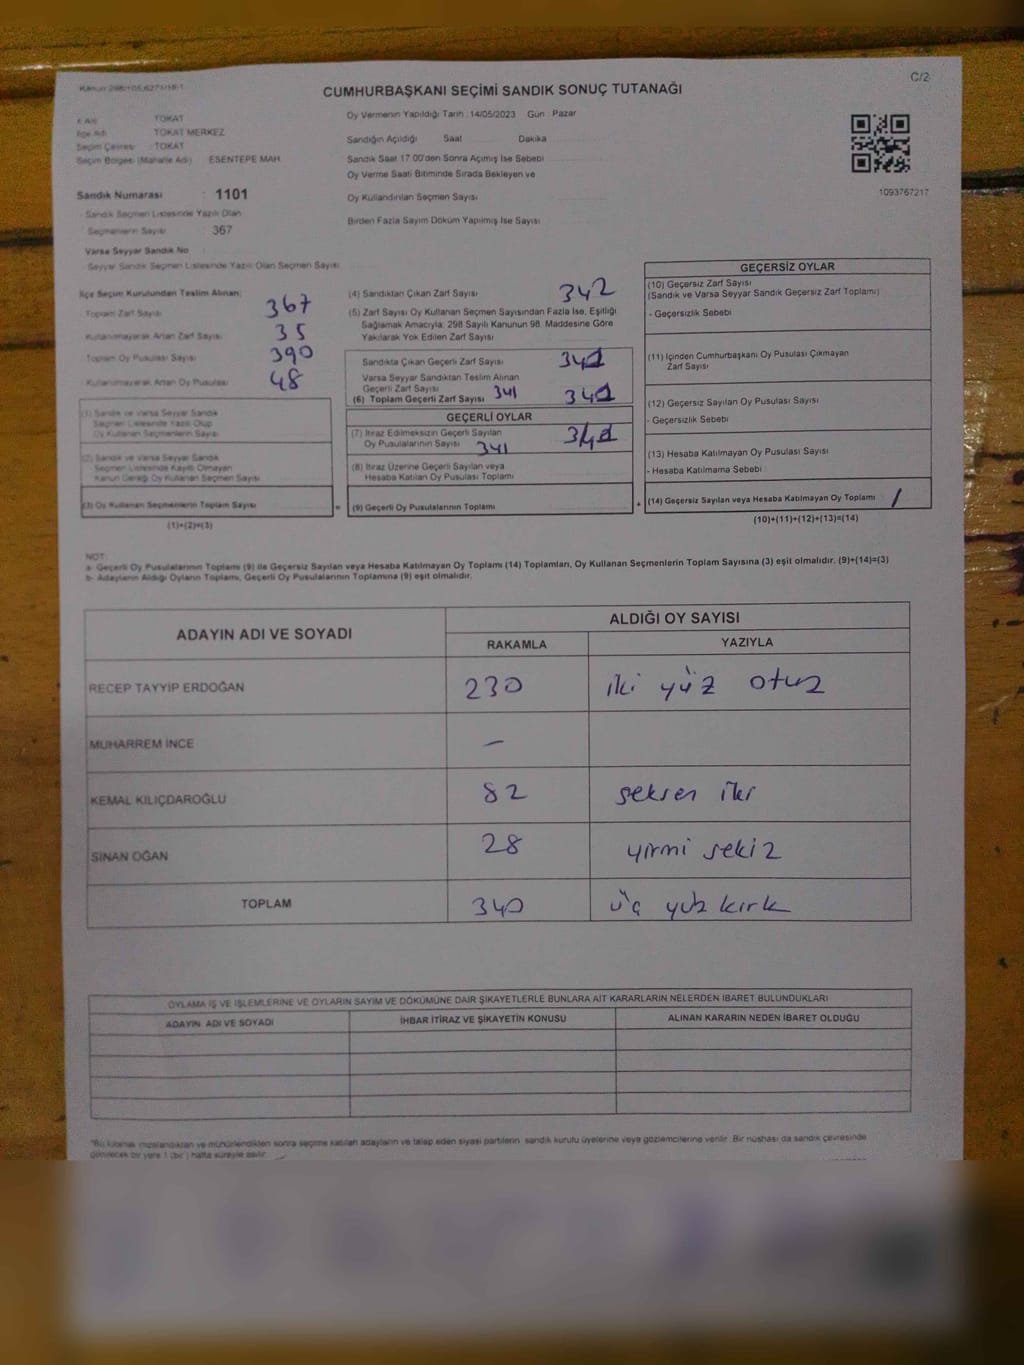 C/2
CUMHURBAŞKANI SEÇİMİ SANDIK SONUÇ TUTANAĞI
İl Adı : TOKAT
İlçe Adı : TOKAT MERKEZ
Seçim Çevresi : TOKAT
Seçim Bölgesi (Mahalle Adı) : ESENTEPE MAH
Sandık Numarası : 1101
- Sandık Seçmen Listesinde Yazılı Olan
Seçmenlerin Sayısı 367
Varsa Seyyar Sandık No
- Seyyar Sandık Seçmen Listesinde Yazılı Olan Seçmen Sayısı
Oy Vermenin Yapıldığı Tarih : 14/05/2023 Gün : Pazar
Sandığın Açıldığı Saat Dakika
Sandık Saat 17.00'den Sonra Açılmış İse Sebebi
Oy Verme Saati Bitiminde Sırada Bekleyen ve
Oy Kullandırılan Seçmen Sayısı
Birden Fazla Sayım Döküm Yapılmış İse Sayısı
1093767217
İlçe Seçim Kurulundan Teslim Alınan;
Toplam Zarf Sayısı 367
Kullanılmayarak Artan Zarf Sayısı 35
Toplam Oy Pusulası Sayısı 390
Kullanılmayarak Artan Oy Pusulası 48
(1) Sandık ve Varsa Seyyar Sandık
Seçmen Listesinde Yazılı Olup
Oy Kullanan Seçmenlerin Sayısı
(2) Sandık ve Varsa Seyyar Sandık
Seçmen Listesinde Kayıtlı Olmayan
Kanun Gereği Oy Kullanan Seçmen Sayısı
(3) Oy Kullanan Seçmenlerin Toplam Sayısı
(1)+(2)=(3)
(4) Sandıktan Çıkan Zarf Sayısı 342
(5) Zarf Sayısı Oy Kullanan Seçmen Sayısından Fazla İse, Eşitliği
Sağlamak Amacıyla; 298 Sayılı Kanunun 98. Maddesine Göre
Yakılarak Yok Edilen Zarf Sayısı
Sandıkta Çıkan Geçerli Zarf Sayısı 341
Varsa Seyyar Sandıktan Teslim Alınan
Geçerli Zarf Sayısı
(6) Toplam Geçerli Zarf Sayısı 341 341
GEÇERLİ OYLAR
(7) İtiraz Edilmeksizin Geçerli Sayılan
Oy Pusulalarının Sayısı 341 341
(8) İtiraz Üzerine Geçerli Sayılan veya
Hesaba Katılan Oy Pusulası Toplamı
= (9) Geçerli Oy Pusulalarının Toplamı +
GEÇERSİZ OYLAR
(10) Geçersiz Zarf Sayısı
(Sandık ve Varsa Seyyar Sandık Geçersiz Zarf Toplamı)
- Geçersizlik Sebebi
(11) İçinden Cumhurbaşkanı Oy Pusulası Çıkmayan
Zarf Sayısı
(12) Geçersiz Sayılan Oy Pusulası Sayısı
- Geçersizlik Sebebi
(13) Hesaba Katılmayan Oy Pusulası Sayısı
- Hesaba Katılmama Sebebi
(14) Geçersiz Sayılan veya Hesaba Katılmayan Oy Toplamı /
(10)+(11)+(12)+(13)=(14)
NOT:
a- Geçerli Oy Pusulalarının Toplamı (9) ile Geçersiz Sayılan veya Hesaba Katılmayan Oy Toplamı (14) Toplamları, Oy Kullanan Seçmenlerin Toplam Sayısına (3) eşit olmalıdır. (9)+(14)=(3)
b- Adayların Aldığı Oyların Toplamı, Geçerli Oy Pusulalarının Toplamına (9) eşit olmalıdır.
ADAYIN ADI VE SOYADI
ALDIĞI OY SAYISI
RAKAMLA YAZIYLA
RECEP TAYYİP ERDOĞAN 230 iki yüz otuz
MUHARREM İNCE –
KEMAL KILIÇDAROĞLU 82 seksen iki
SİNAN OĞAN 28 yirmi sekiz
TOPLAM 340 üç yüz kırk
OYLAMA İŞ VE İŞLEMLERİNE VE OYLARIN SAYIM VE DÖKÜMÜNE DAİR ŞİKAYETLERLE BUNLARA AİT KARARLARIN NELERDEN İBARET BULUNDUKLARI
ADAYIN ADI VE SOYADI İHBAR İTİRAZ VE ŞİKAYETİN KONUSU ALINAN KARARIN NEDEN İBARET OLDUĞU
"Bu tutanak imzalandıktan ve mühürlendikten sonra seçime katılan adayların ve talep eden siyasi partilerin sandık kurulu üyelerine veya gözlemcilerine verilir. Bir nüshası da sandık çevresinde
görülecek bir yere 1 (bir) hafta süreyle asılır.